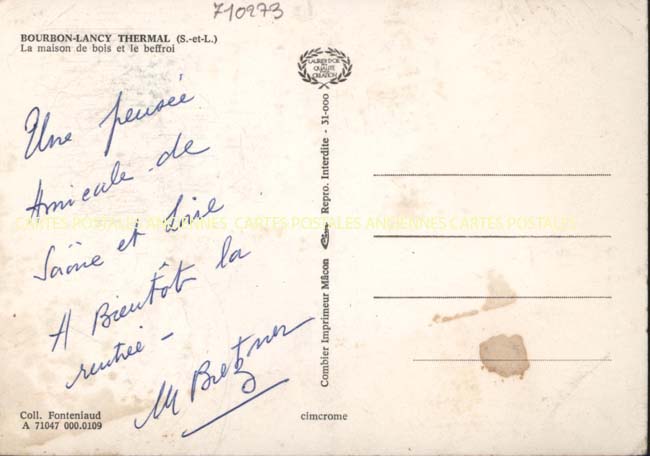 710273
BOURBON-LANCY THERMAL (S.-et-L.)
La maison de bois et le beffroi
LAURIER D'OR
DE LA
QUALITÉ
CRÉATION
Une pensée
Amicale de
Saône et Loire
A Bientôt la
rentrée -
M Bretzner
Combier Imprimeur Mâcon Repro. Interdite - 31-000
CARTES POSTALES ANCIENNES CARTES POSTALES ANCIENNES CARTES POSTALES
Coll. Fonteniaud
A 71047 000.0109
cimcrome